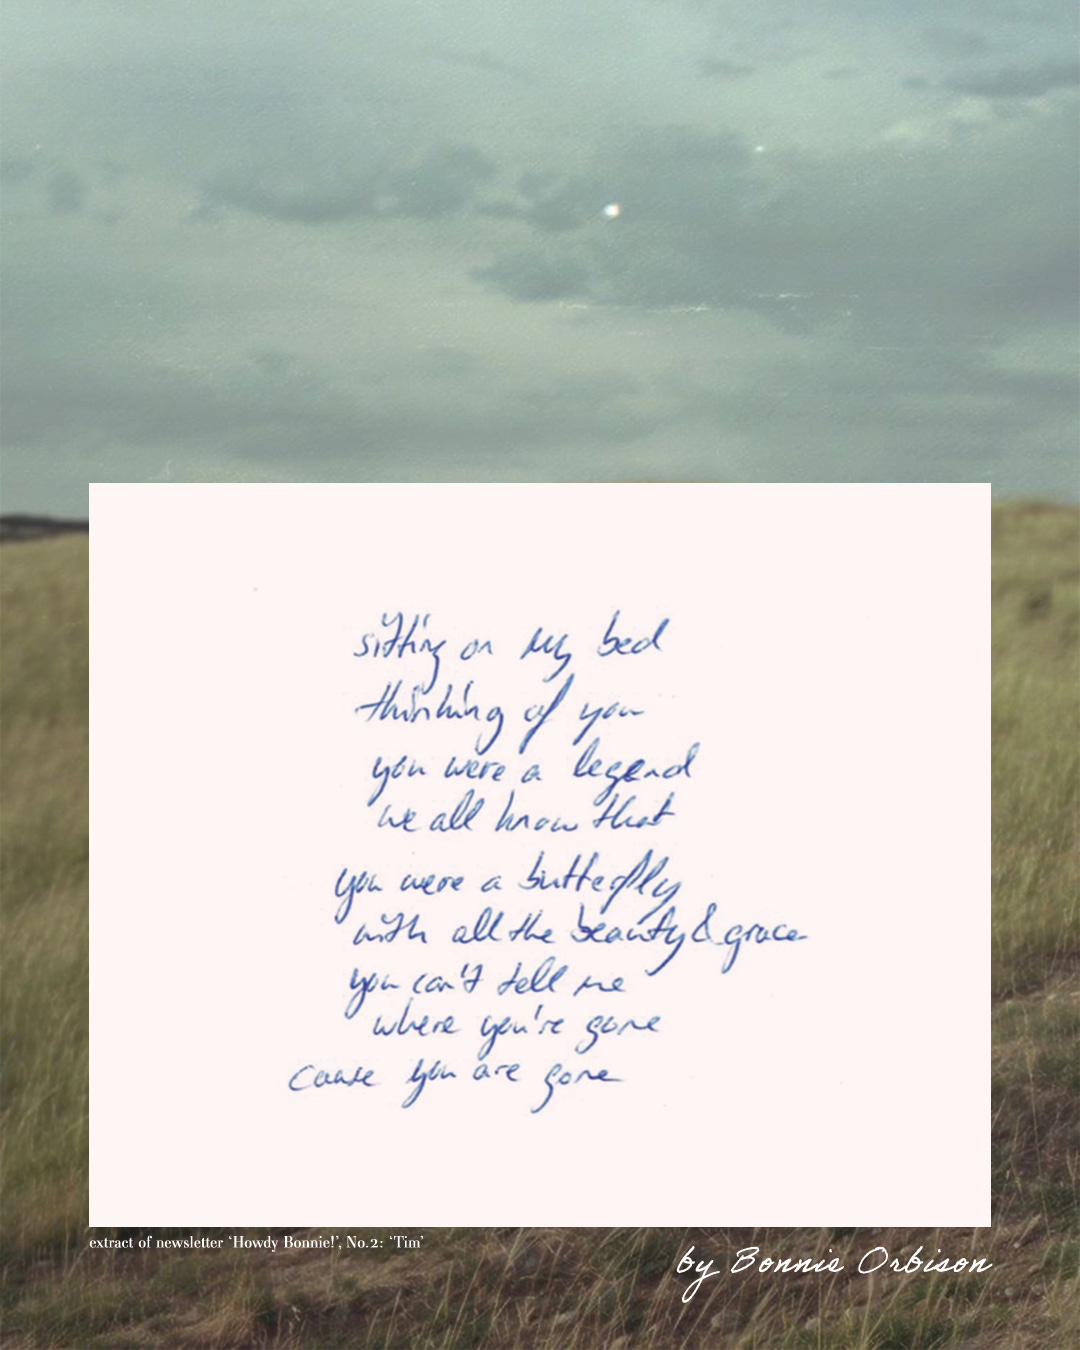 sitting on my bed
thinking of you
you were a legend
we all know that
you were a butterfly
with all the beauty & grace
you can't tell me
where you're gone
cause you are gone
extract of newsletter ‘Howdy Bonnie!’, No.2: ‘Tim’
by Bonnie Orbison